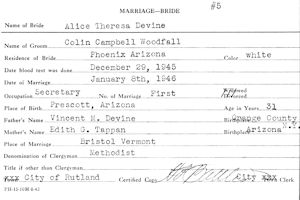 MARRIAGE—BRIDE
#5
Name of Bride Alice Theresa Devine
Name of Groom Colin Campbell Woodfall
Residence of Bride Phoenix Arizona Color white
Date blood test was done December 29, 1945
Date of Marriage January 8th, 1946
Occupation Secretary No. of Marriage First
Place of Birth Prescott, Arizona Age in Years 31
Father's Name Vincent M. Devine Birthplace Orange County
Mother's Name Edith G. Tappan Birthplace Arizona
Place of Marriage Bristol Vermont
Denomination of Clergyman Methodist
Title if other than Clergyman.
City of Rutland Certified Copy City Clerk